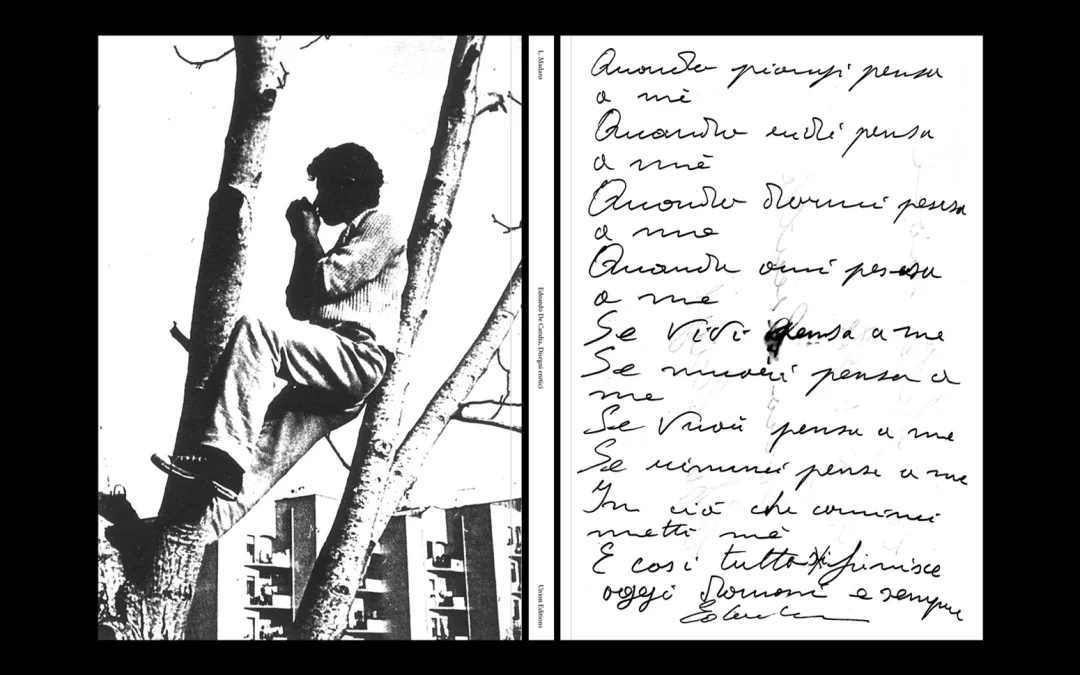 L. Madaro
Edoardo De Candia, Disegni erotici
Union Editions
Quando piangi pensa
a mè
Quando ridi pensa
a mè
Quando dormi pensa
a me
Quando ami pensa
a me
Se vivi pensa a me
Se muori pensa a
me
Se vuoi pensa a me
Se rinunci pensa a me
In ciò che cominci
metti mè
E così tutto finisce
oggi domani e sempre